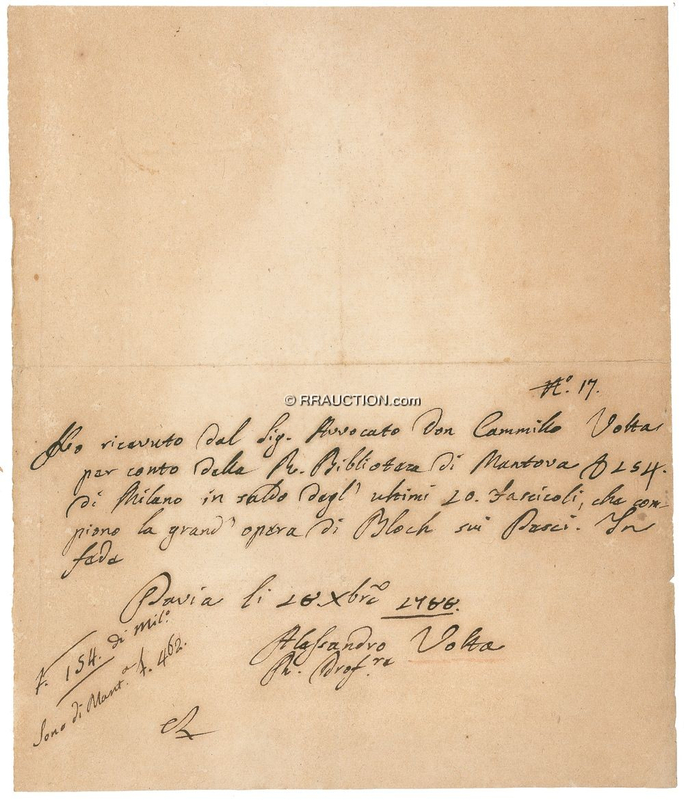 N.º 17.
© RRAUCTION.com
Ho ricevuto dal Sig. Avvocato Don Cammillo Volta
per conto della R. Biblioteca di Mantova £ 154.
di Milano in saldo degl' ultimi 10. Fascicoli, che com-
piono la grand' opera di Bloch sui Pesci. In
fede
Pavia li 18 Xbre 1788.
Alessandro Volta
R. Prof.re
£. 154. di Mil.º
Sono di Mant.ª £. 462.